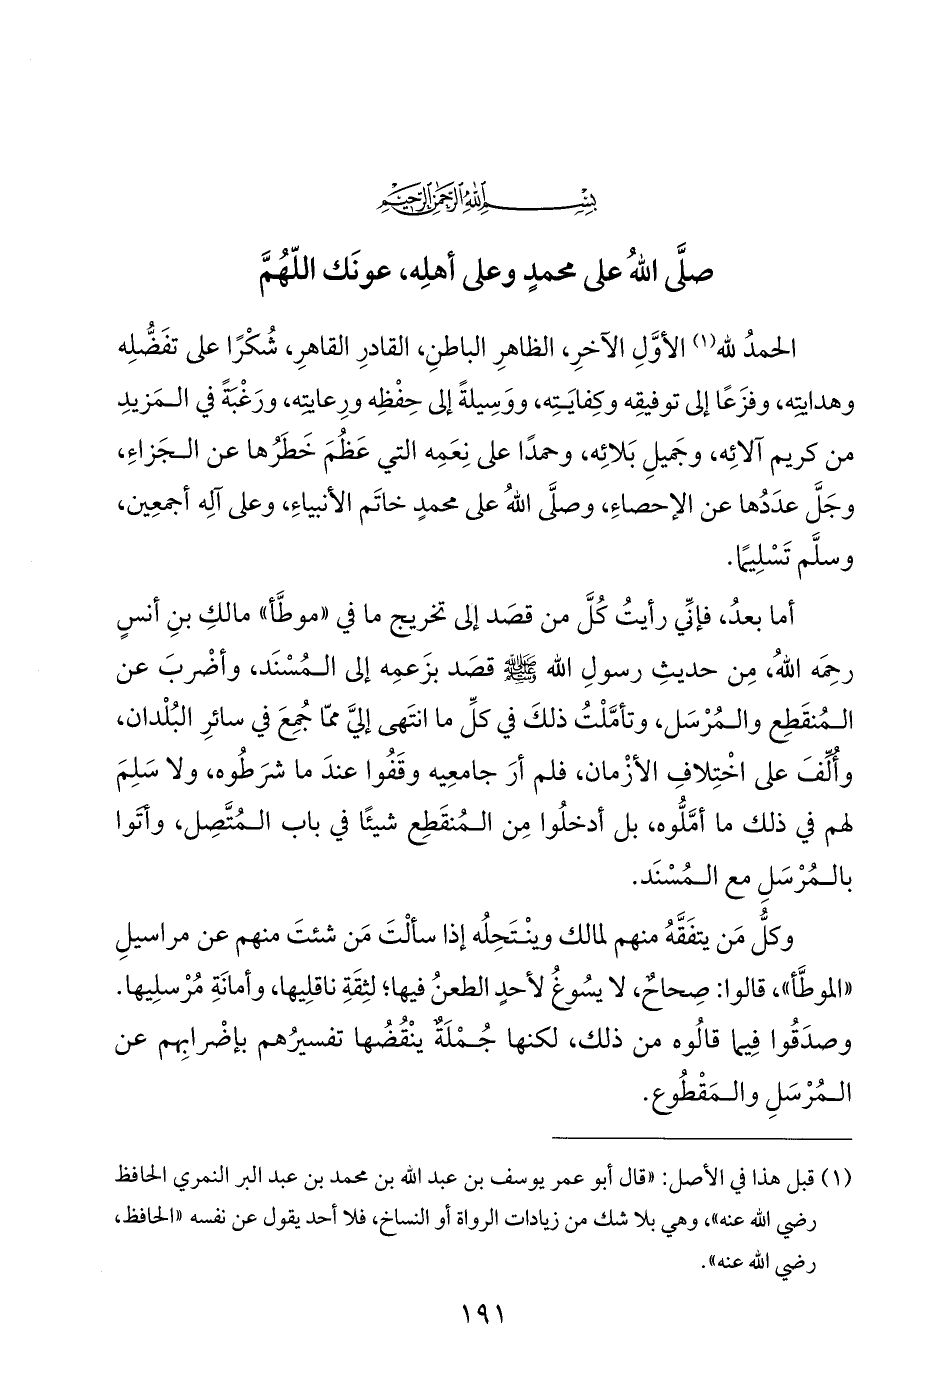 بِسْمِ اللهِ الرَّحْمٰنِ الرَّحِيمِ
صلَّى اللهُ على محمدٍ وعلى أهلِه، عونَك اللّهُمَّ
الحمدُ لله(١) الأوَّلِ الآخرِ، الظاهرِ الباطنِ، القادرِ القاهرِ، شُكْرًا على تفَضُّلِه
وهدايتِه، وفزَعًا إلى توفيقِه وكِفايَتِه، ووَسِيلةً إلى حِفْظِه ورِعايتِه، ورَغْبَةً في الـمَزيدِ
من كريم آلائِه، وجَميلِ بَلائِه، وحمدًا على نِعَمِه التي عَظُمَ خَطَرُها عن الـجَزاءِ،
وجَلَّ عدَدُها عن الإحصاءِ، وصلَّى اللهُ على محمدٍ خاتَم الأنبياءِ، وعلى آلِه أجمعين،
وسلَّم تَسْلِيمًا.
أما بعدُ، فإنِّي رأيتُ كُلَّ من قصَد إلى تخريج ما في «موطَّأ» مالكِ بنِ أنسٍ
رحِمَه اللهُ، مِن حديثِ رسولِ الله ﷺ قصَد بزَعمِه إلى الـمُسْنَد، وأضْربَ عن
الـمُنقَطِع والـمُرْسَل، وتأمَّلْتُ ذلكَ في كلِّ ما انتَهى إليَّ ممّا جُمِعَ في سائرِ البُلْدان،
وأُلِّفَ على اخْتِلافِ الأزْمان، فلم أرَ جامعِيه وقَفُوا عندَ ما شرَطُوه، ولا سَلِمَ
لهم في ذلك ما أمَّلُوه، بل أدخلُوا مِن الـمُنقَطِع شيئًا في باب الـمُتَّصِل، وأتَوا
بالـمُرْسَلِ مع الـمُسْنَد.
وكلُّ مَن يتفَقَّهُ منهم لمالك وينْتَحِلُه إذا سألْتَ مَن شئتَ منهم عن مراسيلِ
«الموطَّأ»، قالوا: صِحاحٌ، لا يسُوغُ لأحدٍ الطعنُ فيها؛ لثِقَةِ ناقليها، وأمانَةِ مُرْسليها.
وصدَقُوا فِيما قالُوه من ذلك، لكنها جُـمْلَةٌ ينْقُضُها تفسيرُهم بإضْرابِهم عن
الـمُرْسَلِ والـمَقْطُوع.
(١) قبل هذا في الأصل: «قال أبو عمر يوسف بن عبد الله بن محمد بن عبد البر النمري الحافظ
رضي الله عنه»، وهي بلا شك من زيادات الرواة أو النساخ، فلا أحد يقول عن نفسه «الحافظ،
رضي الله عنه».
١٩١